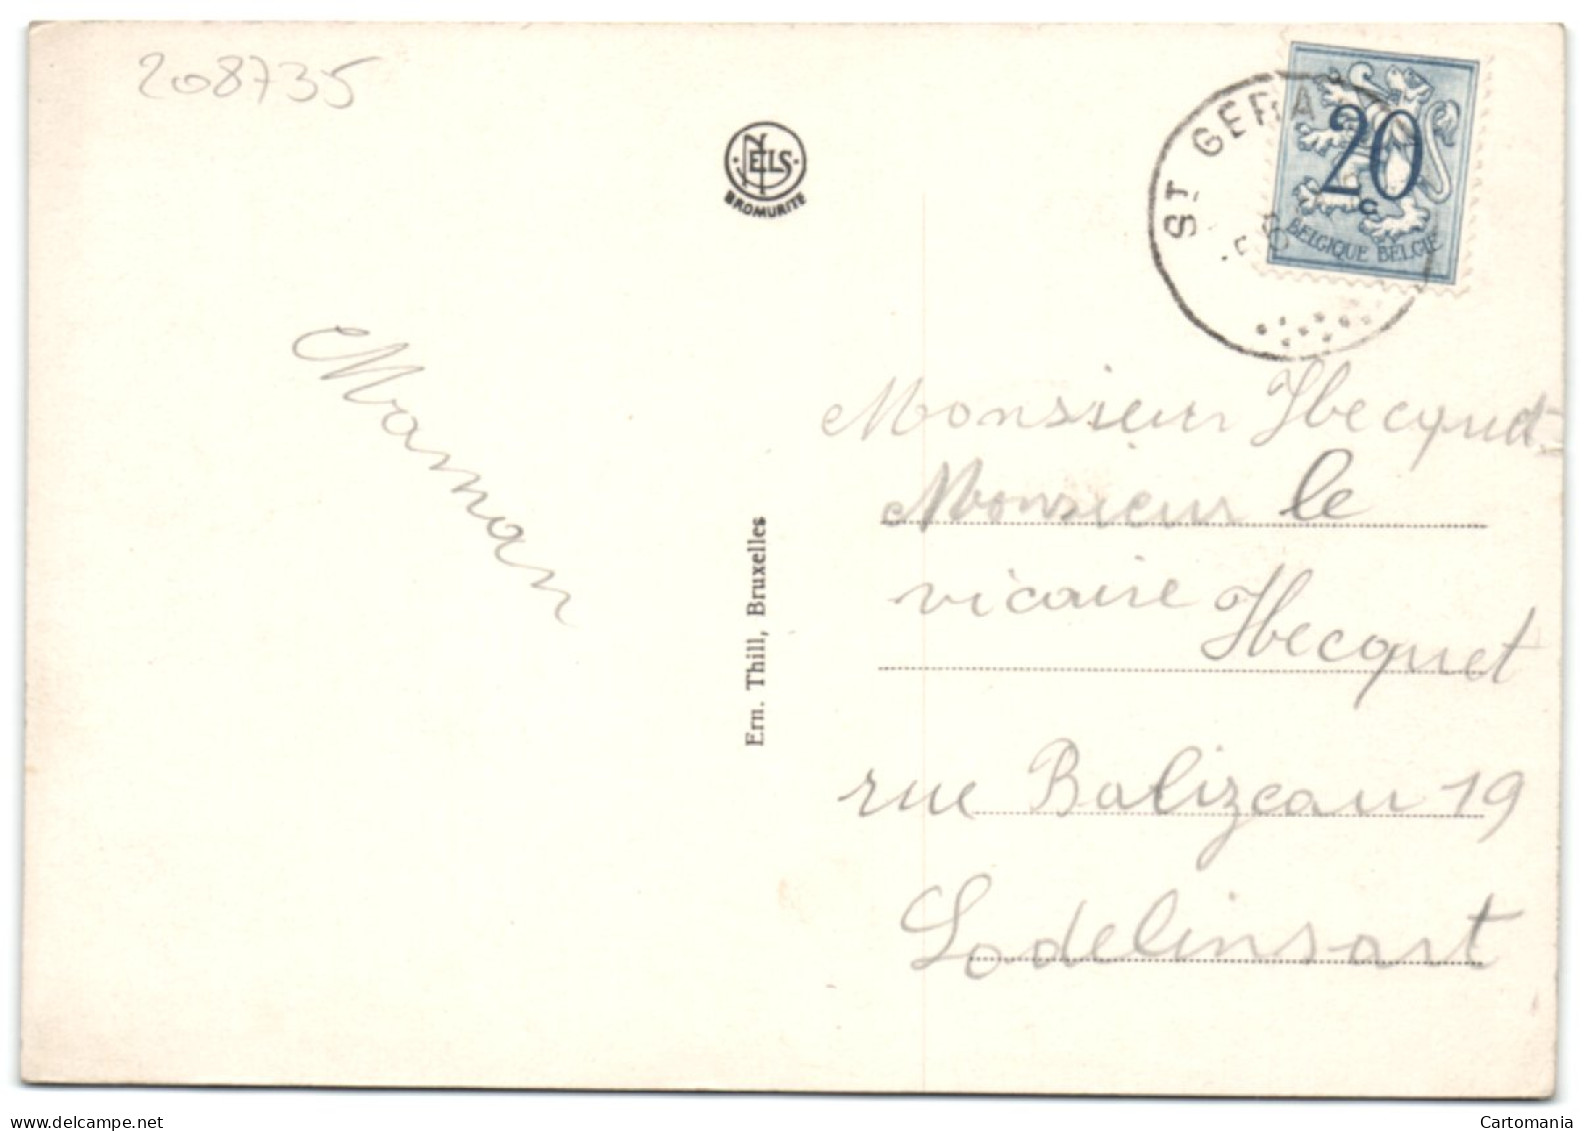 208735
NELS
BROMURITE
ST GERA
20
c
BELGIQUE BELGIE
Maman
Ern. Thill, Bruxelles
Monsieur Hecquet
Monsieur le
vicaire Hecquet
rue Balizeau 19
Lodelinsart
Cartomania